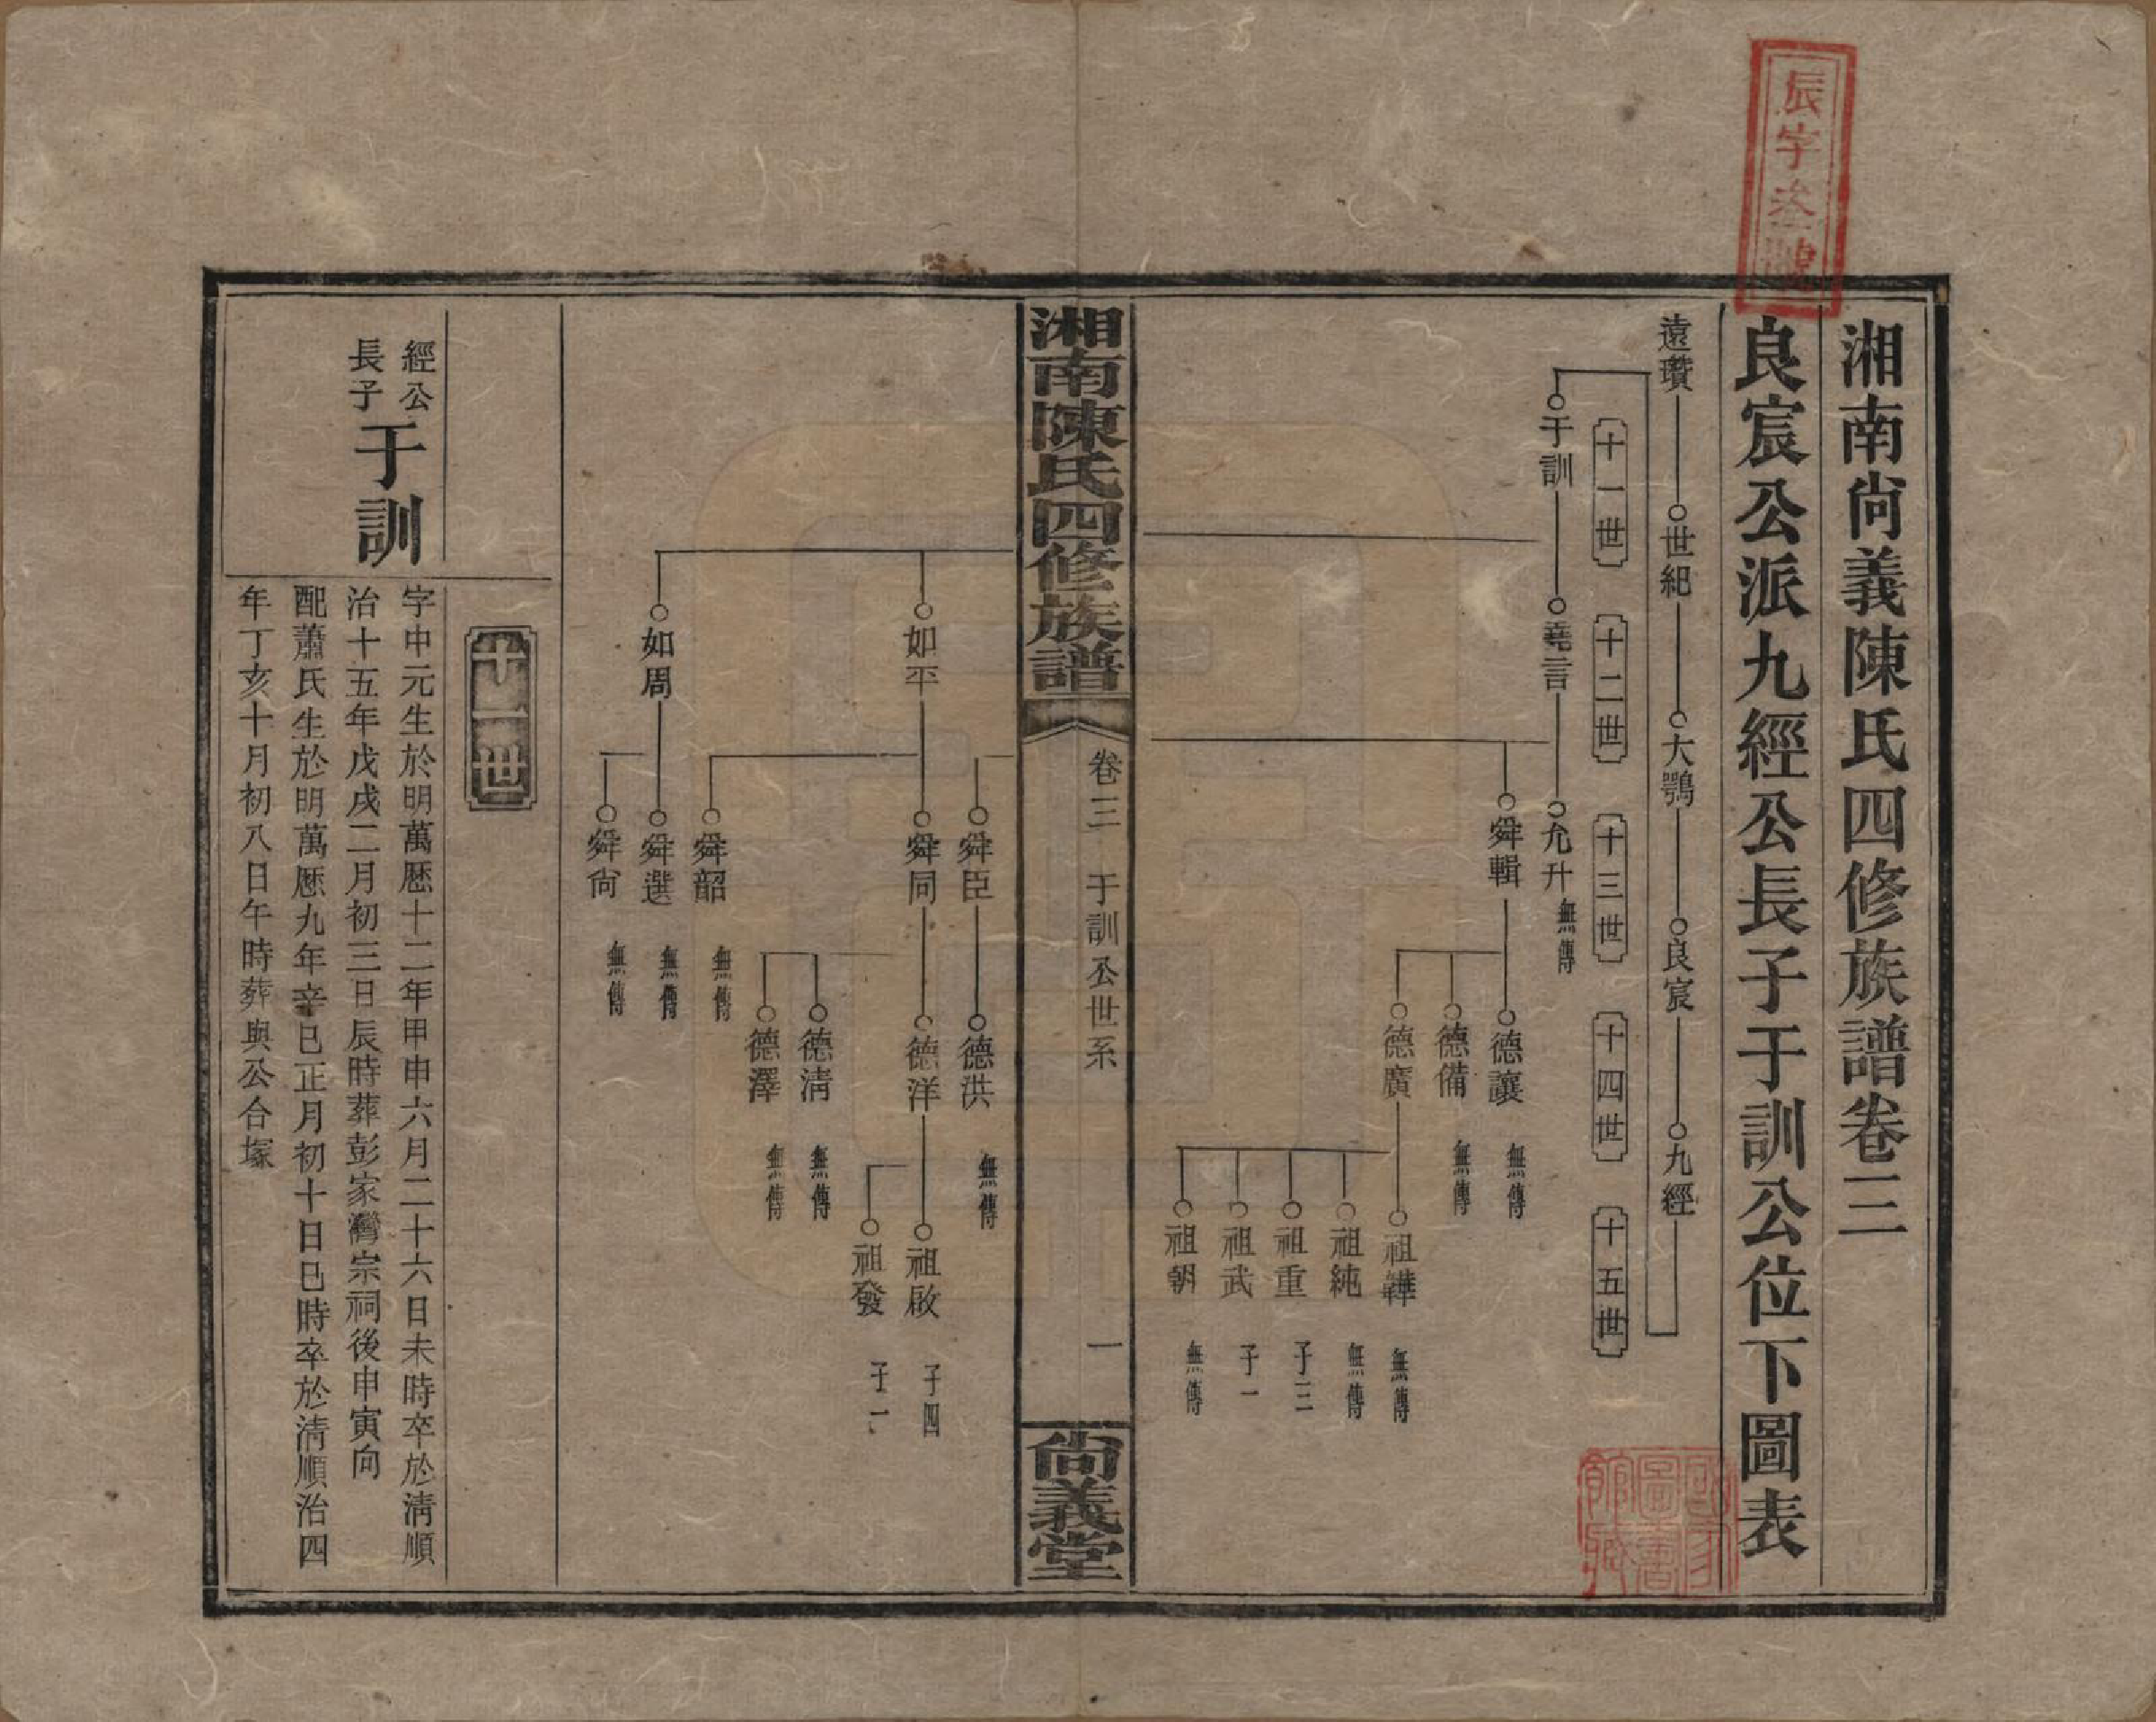 辰字叁號
湘南尙義陳氏四修族譜卷三
良宸公派九經公長子于訓公位下圖表
遠瓚 世紀 大鶚 良宸 九經
十一世 十二世 十三世 十四世 十五世
于訓 堯言 允升 無傳
舜輯 德讓 無傳
德備 無傳
德廣 祖鞾 無傳
祖純 無傳
祖重 子三
祖武 子一
祖朝 無傳
湘南陳氏四修族譜 卷三 于訓公世系 一 尙義堂
舜臣 德洪 無傳
如平 舜同 德洋 祖啟 子四
祖發 子一
德清 無傳
德澤 無傳
舜韶 無傳
如周 舜選 無傳
舜尙 無傳
十一世
經公長子于訓
字中元生於明萬曆十二年甲申六月二十六日未時卒於清順
治十五年戊戌二月初三日辰時葬彭家灣宗祠後申寅向
配蕭氏生於明萬曆九年辛巳正月初十日巳時卒於清順治四
年丁亥十月初八日午時葬與公合塚
國家圖書館藏